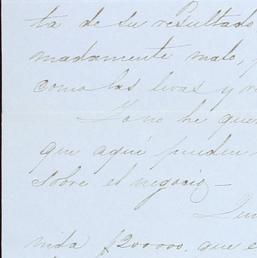 ta de su resultado
madamente malo,
como las
Yo no he que
que aquí pueden
sobre el negocio—
$200000, que e